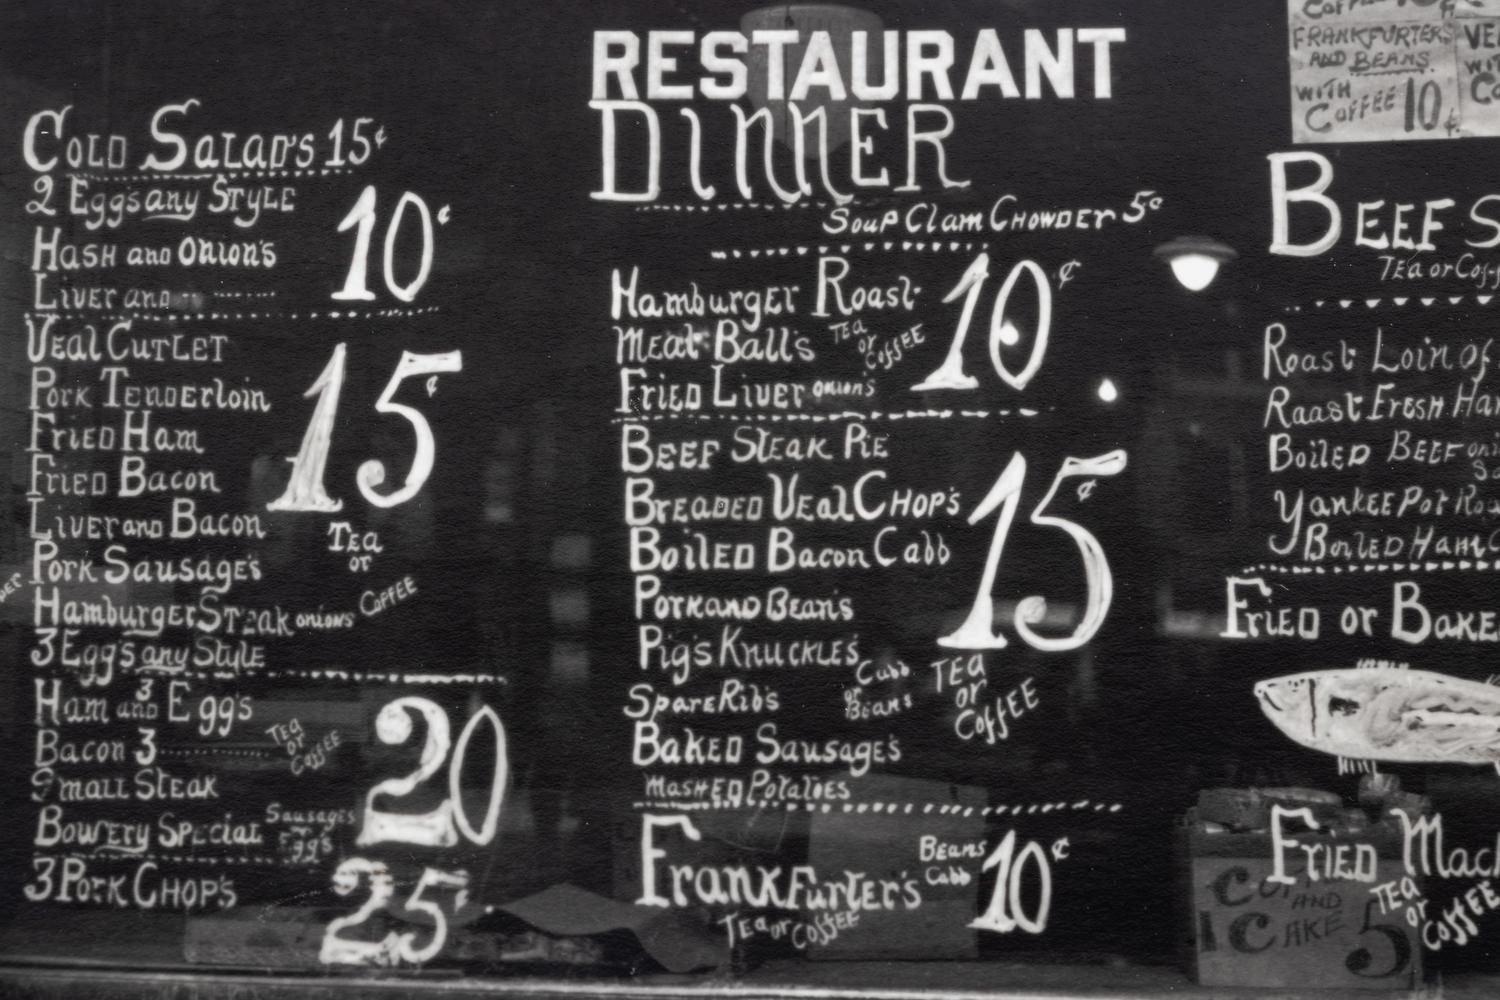 Cold Salad's 15¢
2 Eggs any Style
Hash and Onion's
Liver and
10¢
Veal Cutlet
Pork Tenderloin
Fried Ham
Fried Bacon
Liver and Bacon
Pork Sausage's
Hamburger Steak onions
3 Egg's any Style
15¢
Tea
or
Coffee
Ham and 3 Egg's
Bacon 3
Tea
or
Coffee
Small Steak
Bowery Special Sausages
Egg's
20
3 Pork Chop's
25¢
RESTAURANT
Dinner
Soup Clam Chowder 5¢
Hamburger Roast
Meat Ball's Tea
or
Coffee
Fried Liver onion's
10¢
Beef Steak Pie
Breaded Veal Chop's
Boiled Bacon Cabb
Pork and Bean's
Pig's Knuckle's
Cabb
or
Beans
Spare Rib's
Baked Sausage's
Mashed Potatoes
15¢
Tea
or
Coffee
Frankfurter's Beans
Cabb
10¢
Tea or Coffee
FRANKFURTERS
AND BEANS.
WITH
COFFEE 10¢
WIT
Beef S
Tea or Coff
Roast Loin of
Roast Fresh Ham
Boiled Beef
Yankee Pot Roa
Boiled Ham C
Fried or Bake
Fried Mack
Tea
or
Coffee
AND
CAKE 5